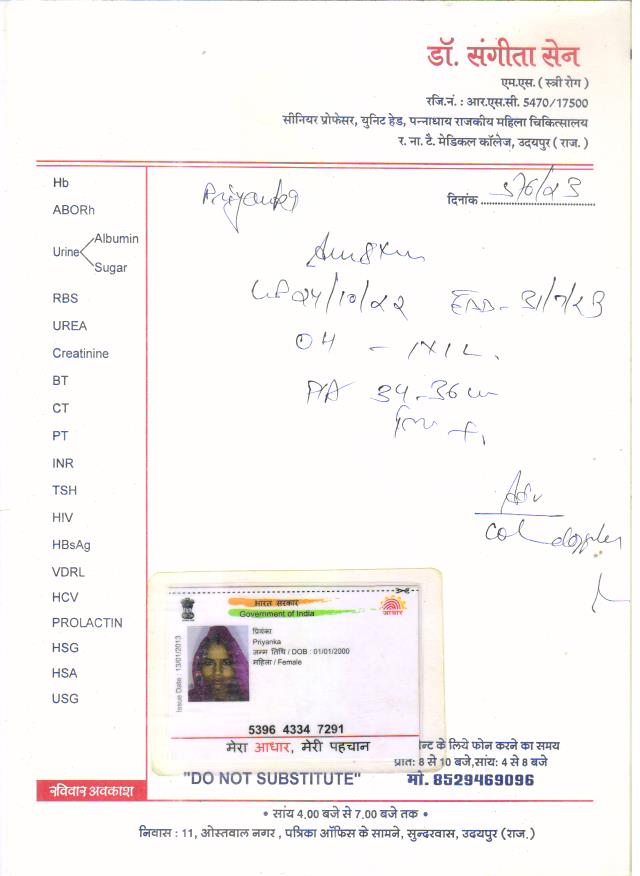 डॉ. संगीता सेन
एम.एस. ( स्त्री रोग )
रजि.नं. : आर.एस.सी. 5470/17500
सीनियर प्रोफेसर, युनिट हेड, पन्नाधाय राजकीय महिला चिकित्सालय
र. ना. टै. मेडिकल कॉलेज, उदयपुर ( राज. )
Hb
ABORh
Urine
Albumin
Sugar
RBS
UREA
Creatinine
BT
CT
PT
INR
TSH
HIV
HBsAg
VDRL
HCV
PROLACTIN
HSG
HSA
USG
Priyanka
दिनांक
24/10/22 EDD- 31/7/23
OH - NIL.
P/A 34-36 w
Adv
Col doppler
भारत सरकार
Government of India
आधार
Issue Date : 13/01/2013
प्रियंका
Priyanka
जन्म तिथि / DOB : 01/01/2000
महिला / Female
5396 4334 7291
मेरा आधार, मेरी पहचान
के लिये फोन करने का समय
प्रात: 8 से 10 बजे,सांय: 4 से 8 बजे
"DO NOT SUBSTITUTE"
मो. 8529469096
रविवार अवकाश
• सांय 4.00 बजे से 7.00 बजे तक •
निवास : 11, ओस्तवाल नगर , पत्रिका ऑफिस के सामने, सुन्दरवास, उदयपुर (राज.)